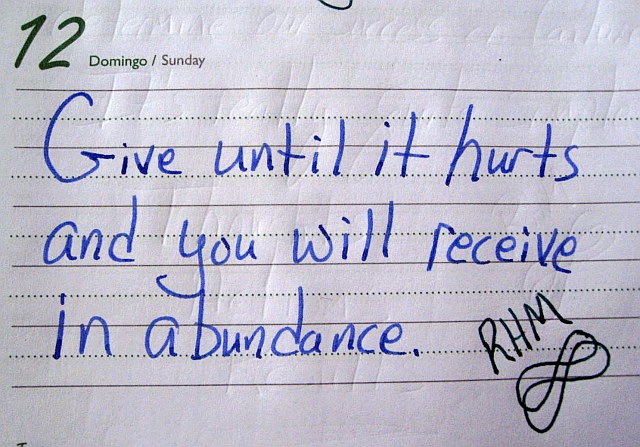 12 Domingo / Sunday
Give until it hurts
and you will receive
in abundance.
RHM